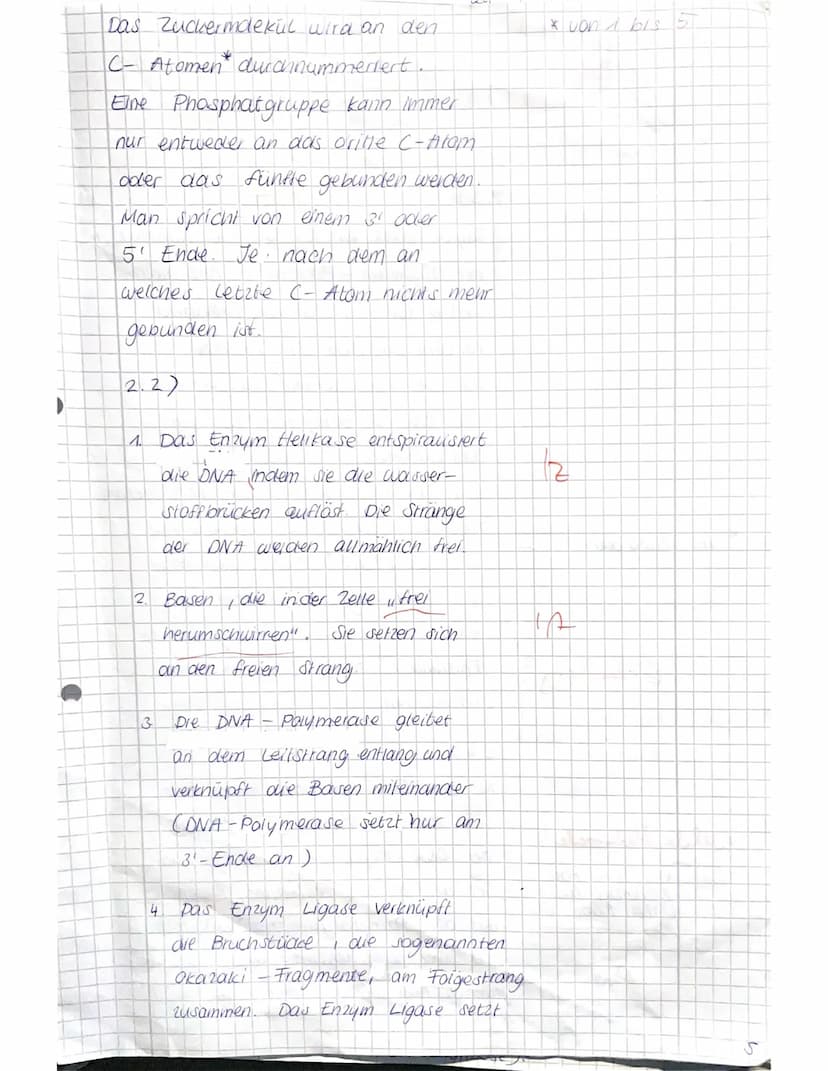 Das Zuckermolekül wird an den
* von 1 bis 5
C- Atomen* durchnummeriert.
Eine Phosphatgruppe kann immer
nur entweder an das dritte C-Atom
oder das fünfte gebunden werden.
Man spricht von einem 3' oder
5' Ende. Je nach dem an
welches letzte C- Atom nichts mehr
gebunden ist.
2.2)
1. Das Enzym Helikase entspiralisiert
die DNA indem sie die Wasser-
stoffbrücken auflöst. Die Stränge
der DNA werden allmählich frei.
2. Basen, die in der Zelle „frei
herumschwirren". Sie setzen sich
an den freien Strang
3. Die DNA - Polymerase gleitet
an dem Leitstrang entlang und
verknüpft die Basen miteinander
(DNA-Polymerase setzt nur am
3'-Ende an)
4 Das Enzym Ligase verknüpft
die Bruchstücke, die sogenannten
Okazaki - Fragmente, am Folgestrang
zusammen. Das Enzym Ligase setzt
5